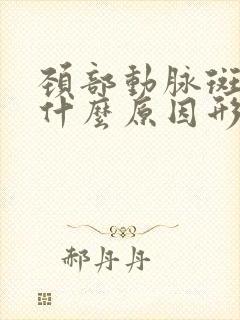 頚部動脉斑
什麼原因形
郝丹丹